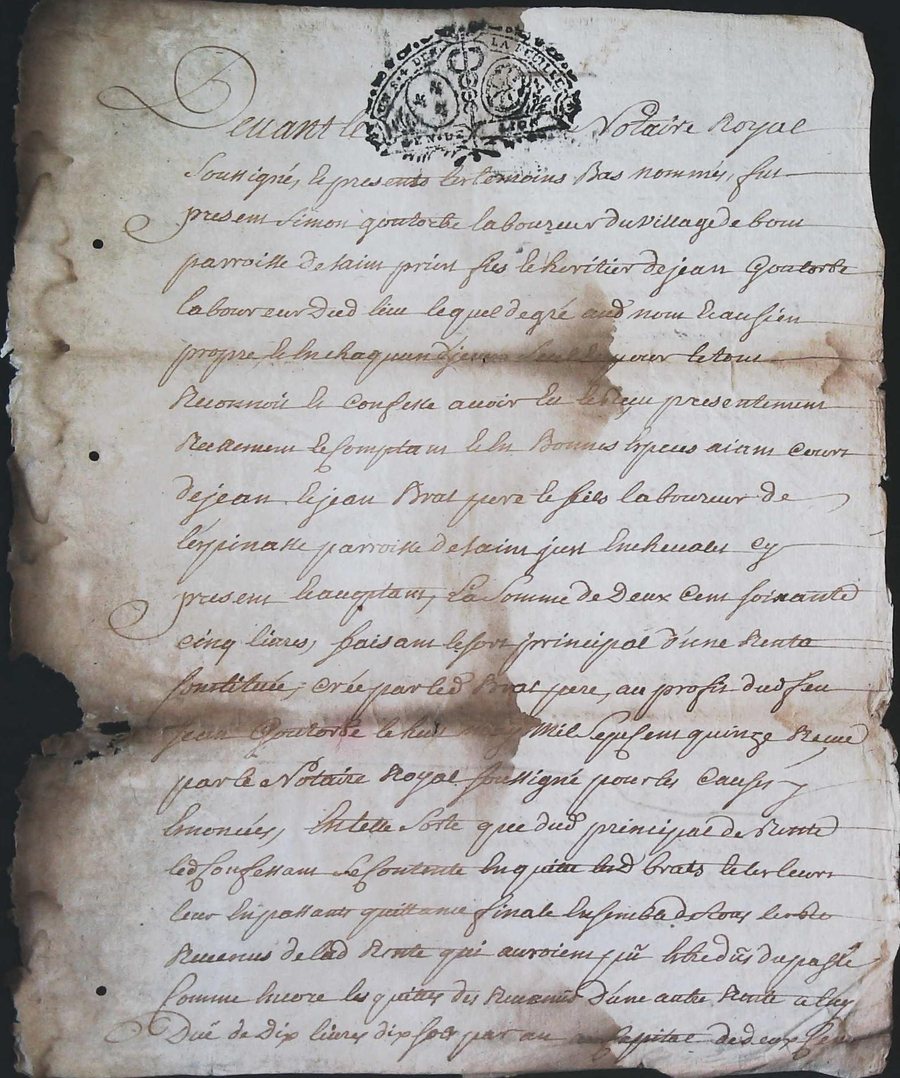 LA FEUILLE
Devant le Notaire Royal
Soussigné, et presents les temoins Bas nommés, fut
present Simon goutorbe laboureur du village de bout
parroisse de saint priest fils et heritier de jean Goutorbe
laboureur dud lieu lequel de gré aud nom et au sien
propre, et en chaquun d'jceux seul et pour le tout
Reconnoit et Confesse avoir Eu et Reçu presentement
Reellement et Comptant et En Bonnes Especes aiant Cours
de jean et jean Brat pere et fils laboureur de
l'espinasse parroisse de saint just En chevalet cy
present et acceptant, La Somme de Deux Cent soixante
cinq livres, faisant le sort principal d'une Rente
Constituée, crée par led Brat pere, au profit dud feu
jean Goutorbe le huit Mil sept cent quinze Recue
par le Notaire Royal soussigné pour les Causes y
Enoncées, En telle Sorte que dud principal de Rente
led Confessant se Contente En quitte lesd brats et les leurs
leur En passant quittance finale Ensemble de tous les
Revenus de lad Rente qui auroient pû Etre dûs du passé
Comme Encore les quitte des Revenus D'une autre Rente a luy
Düe de Dix livres dix sols par an Capital de deux Cent